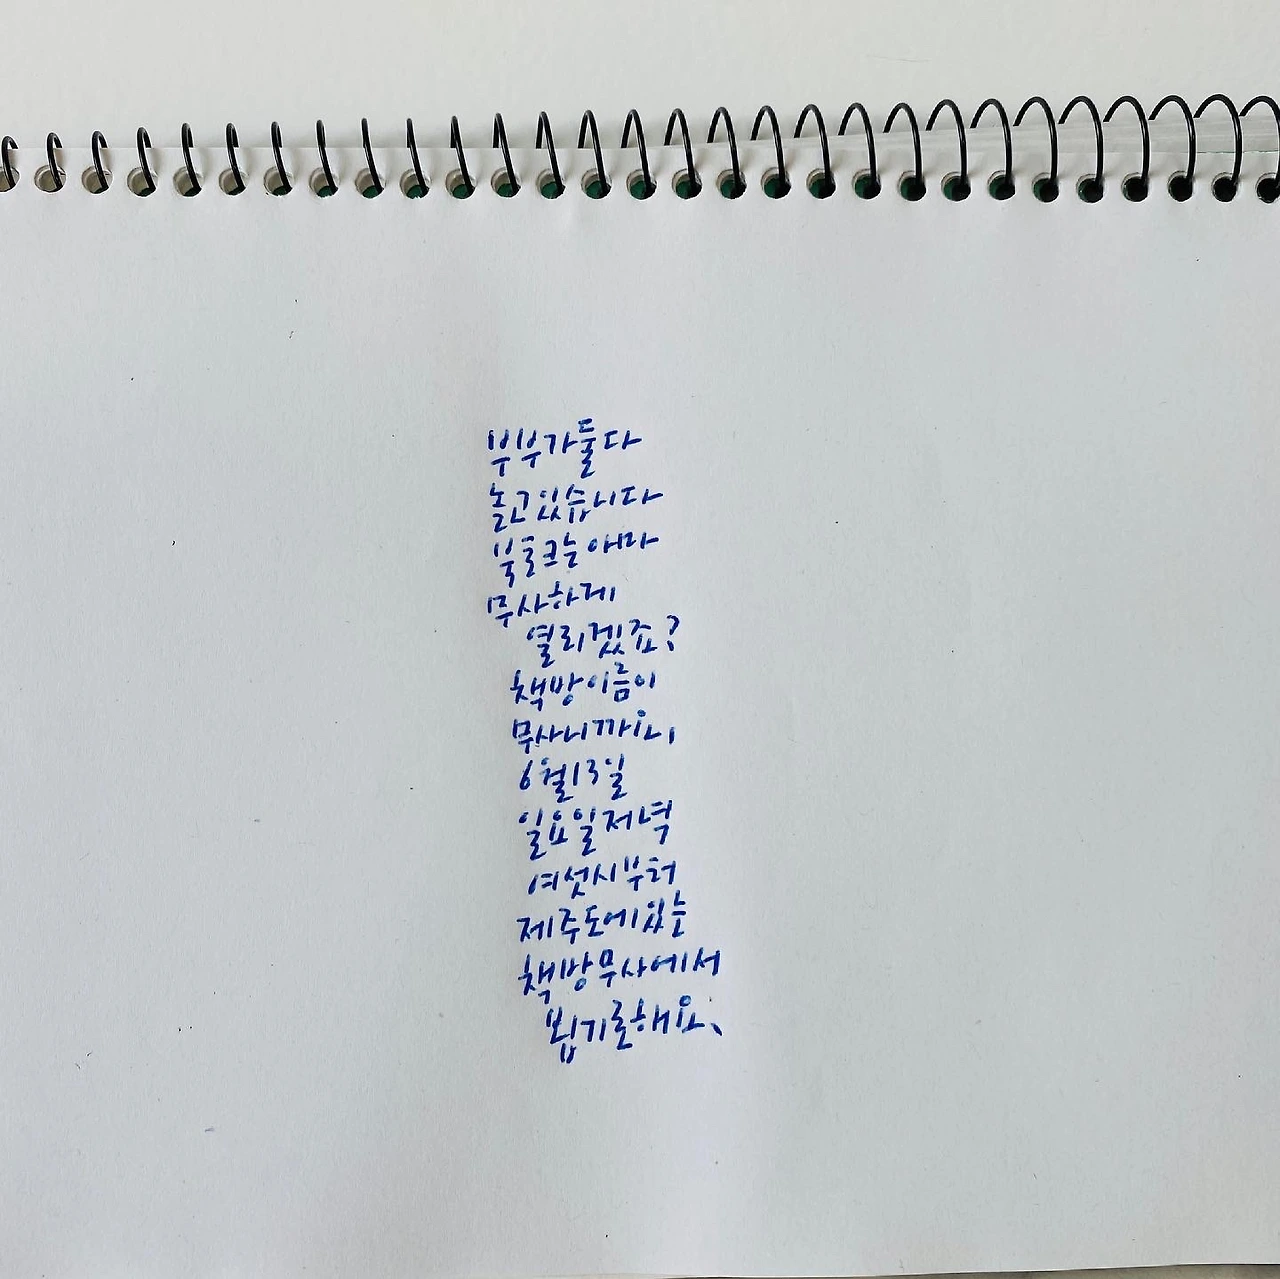 부부가둘다
놀고있습니다
북토크는아마
무사하게
열리겠죠?
책방이름이
무사니까요,
6월13일
일요일저녁
여섯시부터
제주도에있는
책방무사에서
뵙기로해요、